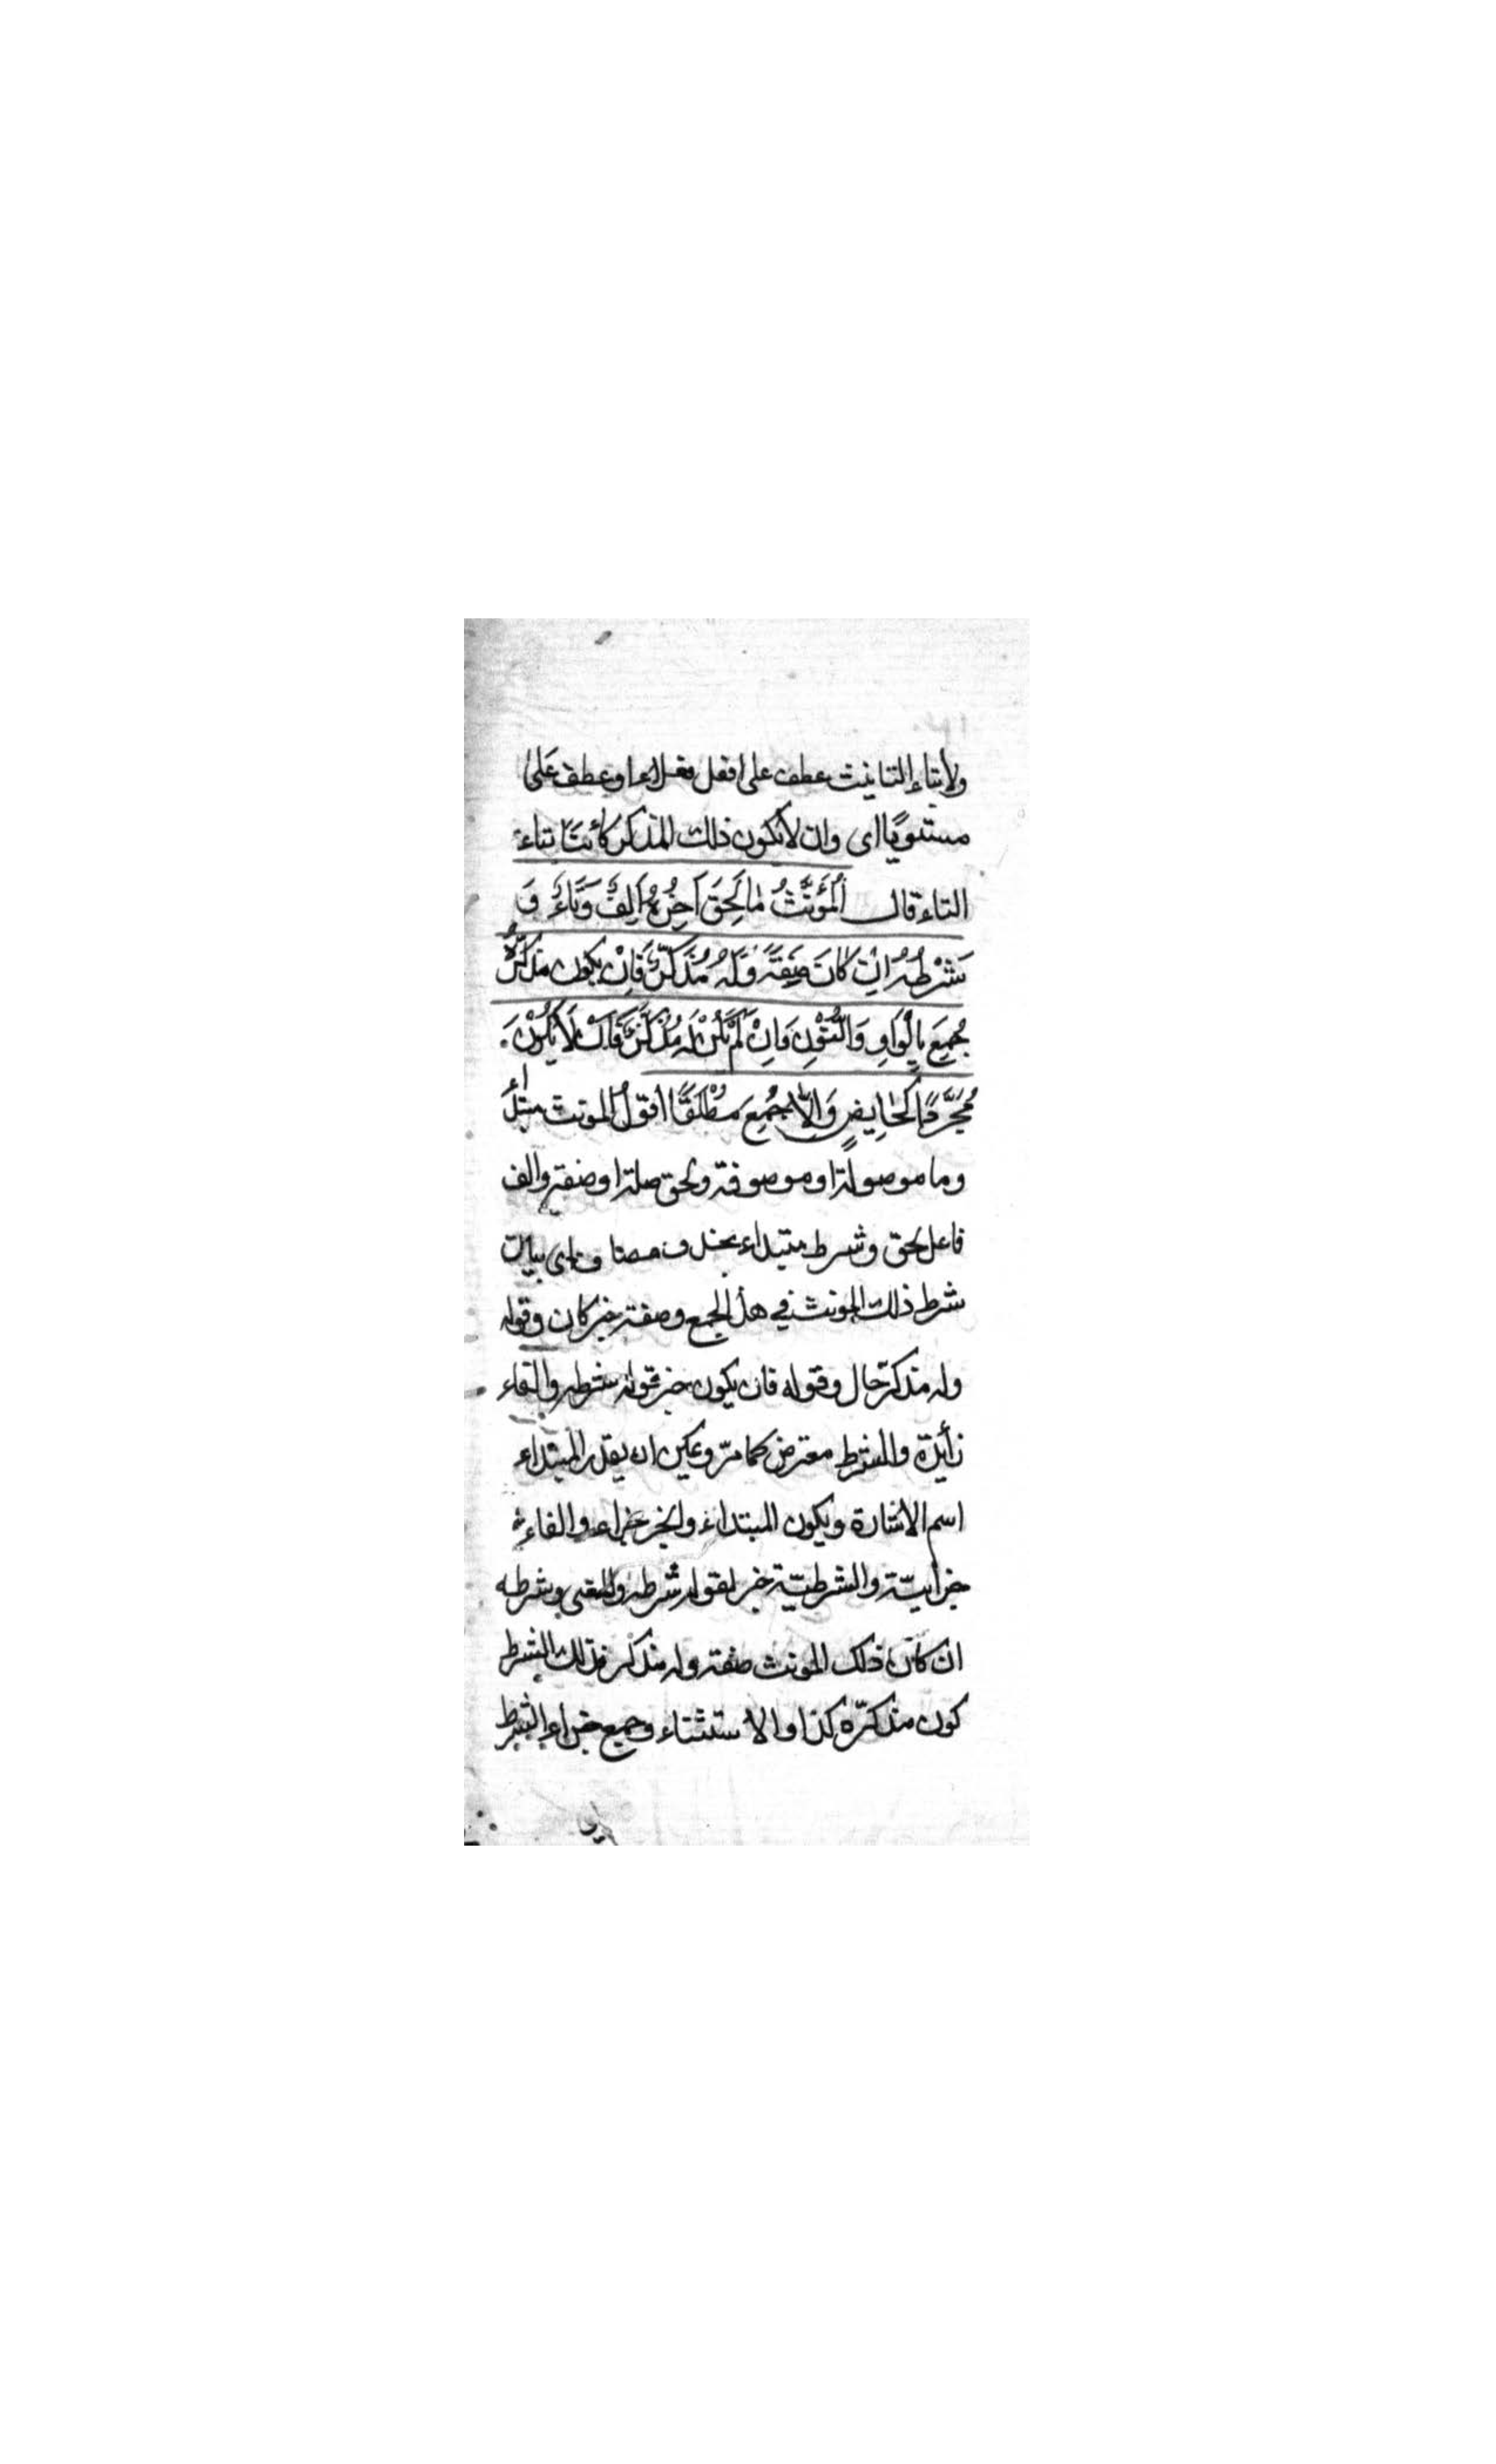 ولا بتاء التانيث عطف على افعل فعلاء او عطف على
مستويًا اى وان لا يكون ذلك المذكر كائنًا بتاء
التاء قال اَلْمُؤَنَّثُ مَا لَحِقَ آخِرُهُ اَلِفٌ وَتَاءٌ وَ
شَرْطُهُ اِنْ كَانَ صِفَةً وَلَهُ مُذَكَّرٌ فَاِنْ يكون مذكرُهُ
جُمِعَ بِالْوَاوِ وَالنُّوْنِ وَاِنْ لَمْ يَكُنْ لَهُ مُذَكَّرٌ فَاَنْ لَا يَكُوْنَ
مُجَرَّدًا كَحَايِضٍ وَاِلَّا جُمِعَ مُطْلَقًا اقول المونث مبتداء
وما موصولة او موصوفة ولحق صلة او صفة والف
فاعل لحق وشرط مبتداء بحذف مضاف اى بيان
شرط ذلك المونث في هذا الجمع وصفة خبر كان وقوله
وله مذكرّ حال وقوله فان يكون خبر قوله شرطه والفاء
زائدة والشرط معترض كما مرّ ويمكن ان يقدر المبتداء
اسم الاشارة ويكون المبتداء والخبر جزاء والفاء
جزايّية والشرطيّة خبر لقوله شرطه والمعنى وشرطه
ان كان ذلك المونث صفة وله مذكر فذلك الشرط
كون مذكرّه كذا والاستثناء وجمع جزاء الشرط